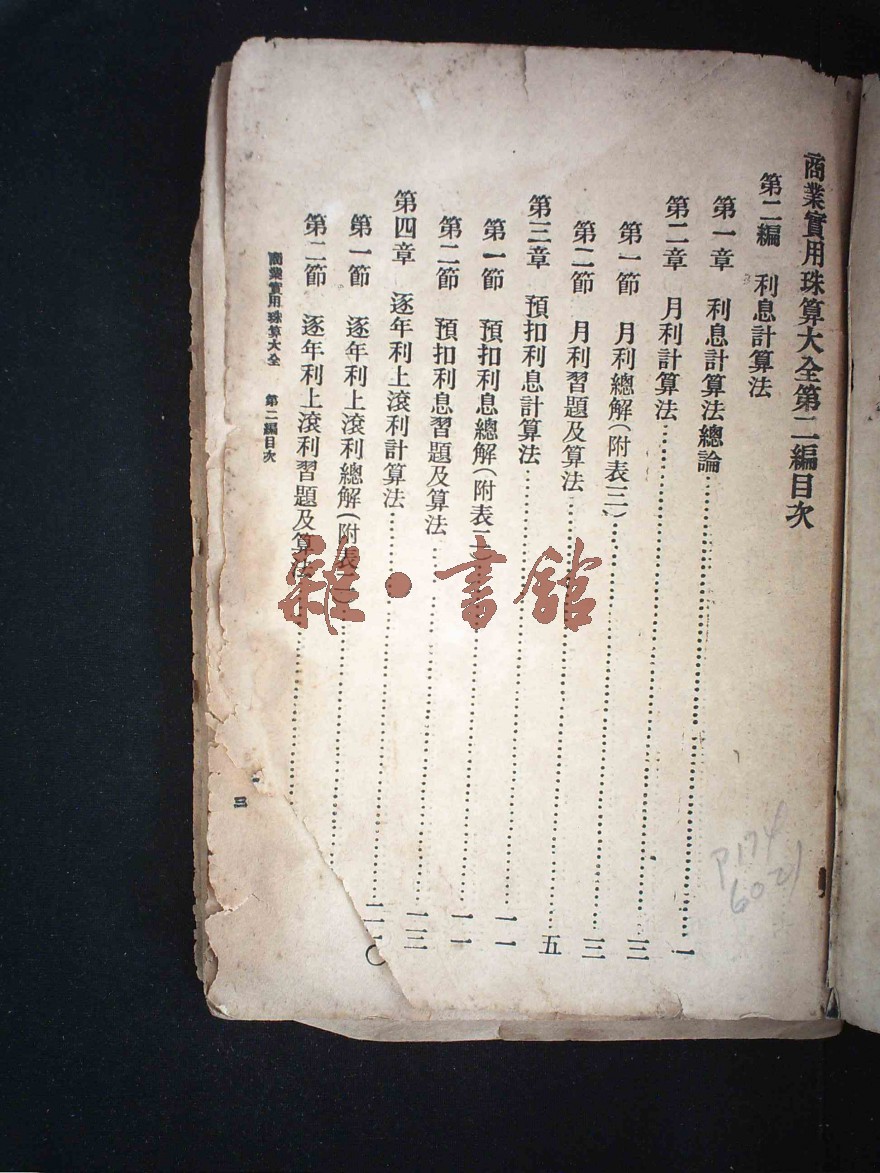 商業實用珠算大全第二編目次
第二編 利息計算法
第一章 利息計算法總論⋯⋯一
第二章 月利計算法⋯⋯三
第一節 月利總解(附表三)⋯⋯三
第二節 月利習題及算法⋯⋯五
第三章 預扣利息計算法⋯⋯一一
第一節 預扣利息總解(附表⋯⋯一一
第二節 預扣利息習題及算法⋯⋯一三
第四章 逐年利上滾利計算法⋯⋯二〇
第一節 逐年利上滾利總解(附表⋯⋯
第二節 逐年利上滾利習題及算法⋯⋯
商業實用珠算大全 第二編目次
三
雜·書館
P174